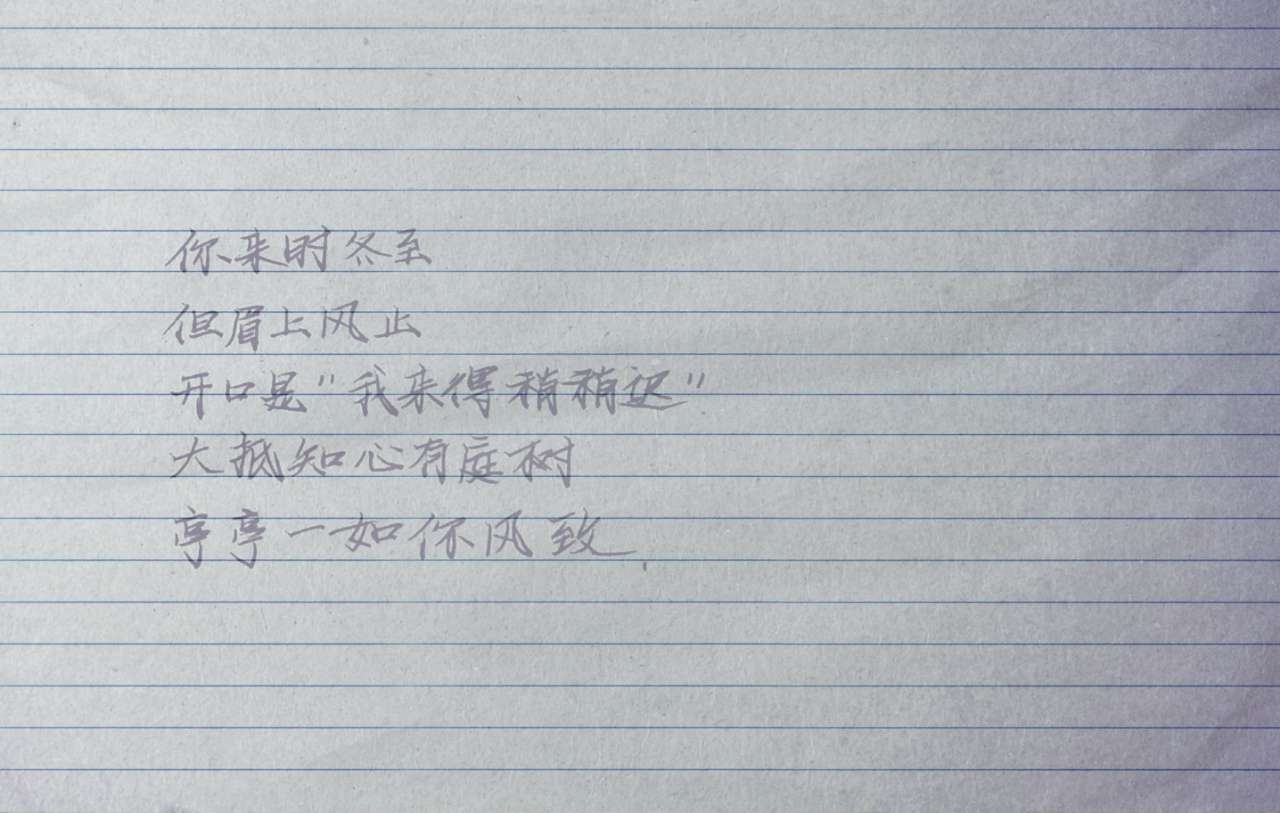 你来时冬至
但眉上风止
开口是"我来得稍稍迟"
大抵知心有庭树
亭亭一如你风致